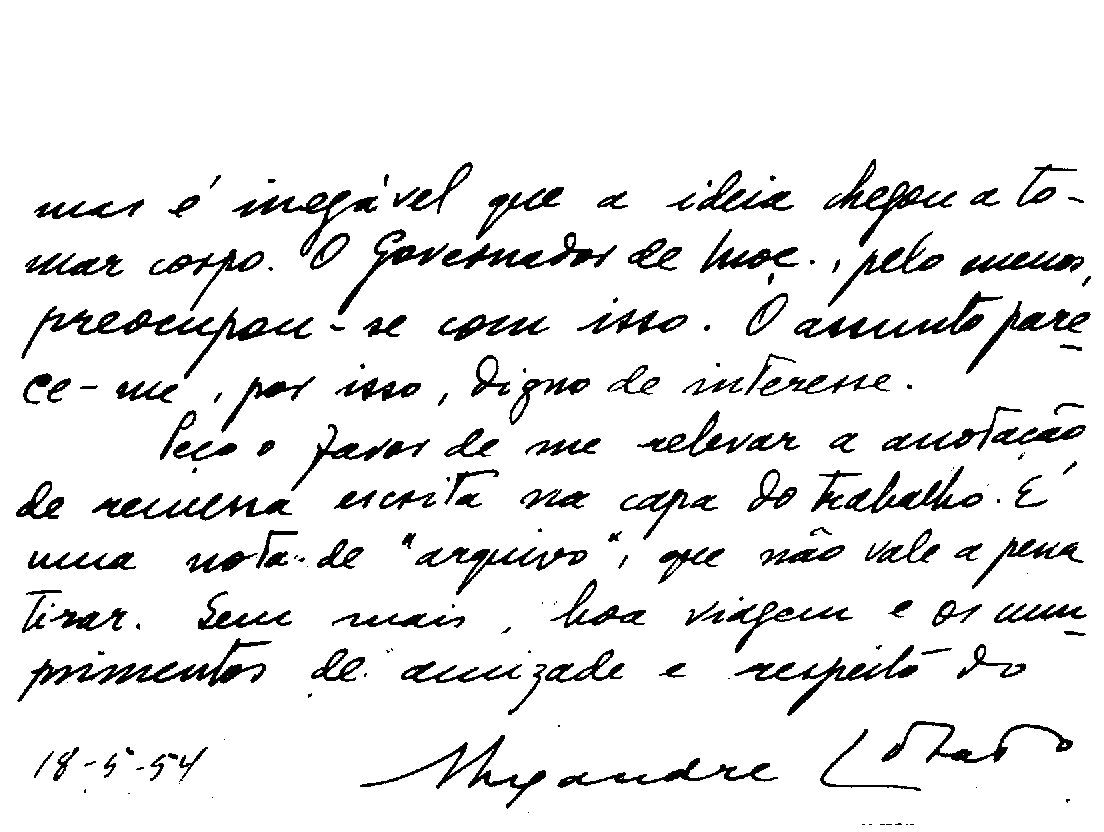 mas é inegável que a ideia chegou a to-
mar corpo. O Governador de Moç., pelo menos,
preocupou-se com isso. O assunto pare
ce-me, por isso, digno de interesse.
Peço o favor de me relevar a anotação
de remessa escrita na capa do trabalho. É
uma nota de "arquivo", que não vale a pena
tirar. Sem mais, boa viagem e os cum
primentos de amizade e respeito do
18-5-54 Alexandre Lobato